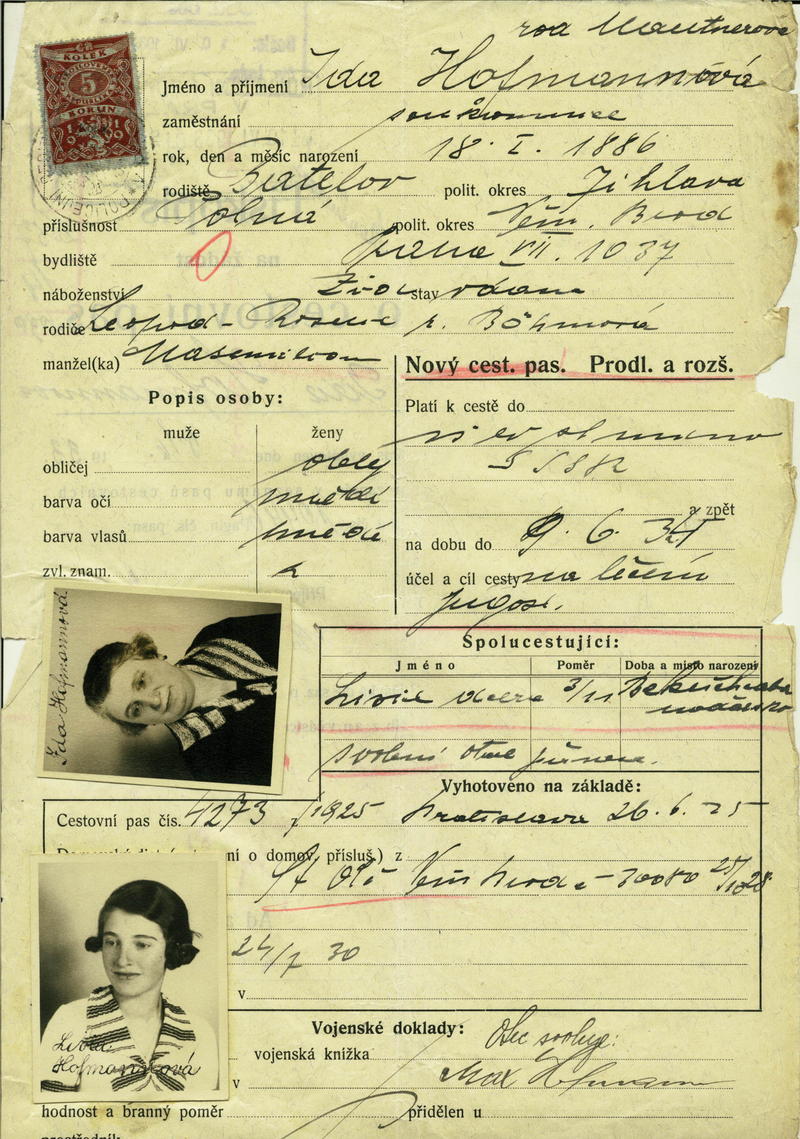 roz Mautnerová
KOLEK
5
KORUN
1919
Jméno a příjmení Ida Hofmannová
zaměstnání soukromnice
rok, den a měsíc narození 18. I. 1886
rodiště Batelov polit. okres Jihlava
příslušnost Polná polit. okres Něm. Brod
bydliště Praha VII. 1037
náboženství žid stav vdaná
rodiče Leopold - Rosenie r. Böhmová
manžel(ka)
Nový cest. pas. Prodl. a rozš.
Popis osoby:
Platí k cestě do
muže ženy
obličej oblý
barva očí hnědé
a zpět
barva vlasů hnědé
na dobu do 9. 6. 34
zvl. znam.
účel a cíl cesty na léčení
Jugosl.
Ida Hofmannová
Spolucestující:
Jméno Poměr Doba a místo narození
Livie dcera 3/11
svolení otce
Vyhotoveno na základě:
Cestovní pas čís. 4273 /1925 Bratislava 26. 6. 25
o domov. přísluš.) z
Něm Brod
24/7 30
v
Vojenské doklady:
Otec svoluje:
vojenská knížka
Max Hofmann
v
Livia
Hofmannová
hodnost a branný poměr přidělen u
prostředník